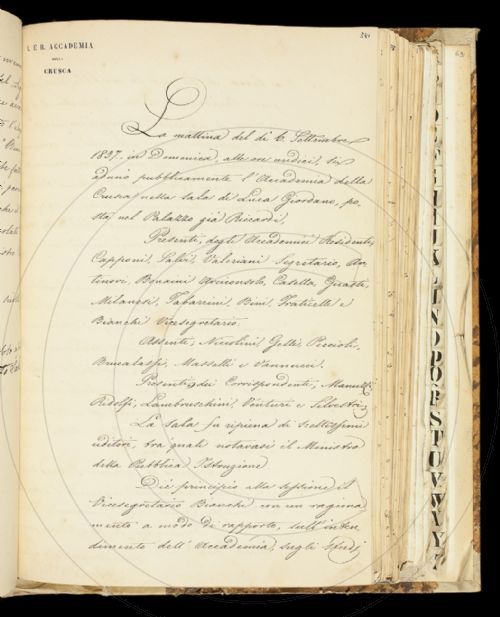 I. E R. ACCADEMIA
DELLA
CRUSCA
La mattina del dì 6. Settembre
1857. in Domenica, alle ore undici, si
adunò pubblicamente l'Accademia della
Crusca nella sala di Luca Giordano, po,,
sta nel Palazzo già Riccardi.
Presenti, degli Accademici Residenti,
Capponi, Salvi, Valeriani Segretario, An,,
tinori, Bonaini Arciconsolo, Casella, Guasti,
Milanesi, Tabarrini, Bini, Fraticelli e
Bianchi Vicesegretario.
Assenti, Niccolini, Gelli, Piccioli,
Brucalassi, Masselli e Vannucci.
Presenti, dei Corrispondenti, Manuzzi,
Ridolfi, Lambruschini, Venturi e Silvestri.
La Sala fu ripiena di sceltissimi
uditori, tra' quali notavasi il Ministro
della Pubblica Istruzione
Diè principio alla sessione il
Vicesegretario Bianchi con un ragiona
mento a modo di rapporto, sull'inten,,
dimento dell'Accademia, sugli studj